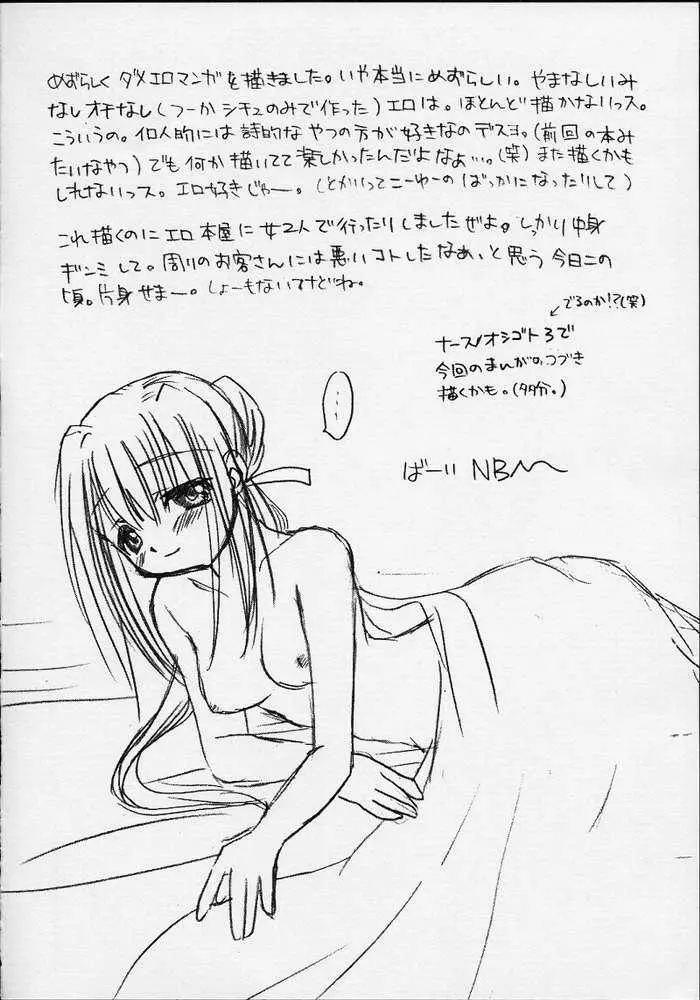 めずらしく ダメエロマンガを描きました。いや本当にめずらしい。やまなしいみ
なしオチなし(つーか シチュのみで作った)エロは。ほとんど描かないっス。
こういうの。イ固人的には詩的なやつの方が好きなのデスよ。(前回の本み
たいなやつ)でも何か描いてて楽しかったんだよなぁ…。(笑)また描くかも
しれないっス。エロ好きじゃー。(とかいってこーゆーの ばっかになったりして)
これ描くのにエロ本屋に女2人で行ったりしましたぜよ。しっかり中身
ギンミして。周りのお客さんには悪いコトしたなぁ、と思う今日この
頃。片身せまー。しょーもないですけどね。
でるのか!?(笑)
ナースノオシゴト3で
今回のまんがのつづき
描くかも。(多分。)
…
ばーい NB